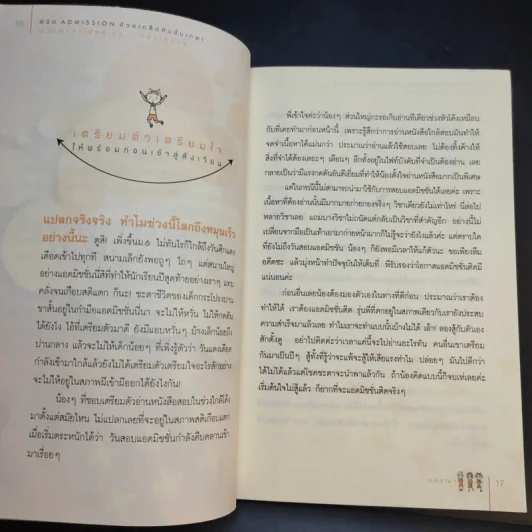 16
พิชิต ADMISSION ด้วยเคล็ดลับขั้นเทพ!
เตรียมตัวเตรียมใจ
ให้พร้อมก่อนเข้าสู่สังเวียน
แปลกจริงจริง ทำไมช่วงนี้โลกถึงหมุนเร็ว
อย่างนี้นะ ดูสิ! เพิ่งขึ้นม.6 ไม่ทันไรก็ใกล้ถึงวันศึกแดง
เดือดเข้าไปทุกที สนามเล็กยังพอถูๆ ไถๆ แต่สนามใหญ่
อย่างแอดมิชชั่นนี่สิที่ทำให้นักเรียนปีสุดท้ายอย่างเราๆ แทบ
คลั่งจนเกือบสติแตก ก็นะ! ชะตาชีวิตของเด็กกระโปรงบาน
ขาสั้นอยู่ในกำมือแอดมิชชั่นนี่นา จะไม่ให้หวั่น ไม่ให้กลัว
ได้ยังไง ไอ้ที่เตรียมตัวมาดี ยังมีแอบหวั่นๆ บ้างเล็กน้อยถึง
ปานกลาง แล้วจะไม่ให้เด็กน้อยๆ ที่เพิ่งรู้ตัวว่า วันแดงเดือด
กำลังเข้ามาใกล้แล้วยังไม่ได้เตรียมตัวเตรียมใจอะไรสักอย่าง
จะไม่ให้อยู่ในสภาพผีเข้าผีออกได้ยังไงกัน!
น้องๆ ที่ชอบเตรียมตัวอ่านหนังสือสอบในช่วงใกล้โค้ง
มาตั้งแต่สมัยไหน ไม่แปลกเลยที่จะอยู่ในสภาพสติเกือบแตก
เมื่อเริ่มตระหนักได้ว่า วันสอบแอดมิชชั่นกำลังคืบคลานเข้า
มาเรื่อยๆ
พี่เข้าใจค่ะว่าน้องๆ ส่วนใหญ่กะรอเก็บอ่านทีเดียวช่วงหัวโค้งเหมือน
กับที่เคยทำมาก่อนหน้านี้ เพราะรู้สึกว่าการอ่านหนังสือใกล้สอบมันทำให้
จดจำเนื้อหาได้แม่นกว่า ประมาณว่าอ่านแล้วใช้สอบเลย ไม่ต้องทิ้งค้างให้
สิ่งที่จำได้ต้องเลอะๆ เลือนๆ อีกทั้งอยู่ในไฟท์บังคับที่จำเป็นต้องอ่าน เลย
กลายเป็นว่ามีแรงกดดันอันดีเยี่ยมที่ทำให้น้องตั้งใจอ่านหนังสือมากเป็นพิเศษ
แต่ในกรณีนี้ไม่สามารถนำมาใช้กับการสอบแอดมิชชั่นได้เลยค่ะ เพราะ
เนื้อหาที่ต้องอ่านนั้นมีมากมายก่ายกองจริงๆ วิชาเดียวยังไม่เท่าไหร่ นี่ล่อไป
หลายวิชาเลย แถมบางวิชาไม่ถนัดแต่กลับเป็นวิชาที่สำคัญอีก อย่างนี้ไม่
เปลี่ยนจากมือเป็นเท้าเอามาก่ายหน้าผากก็ไม่รู้จะว่ายังไงแล้วค่ะ แต่ตราบใด
ที่ยังไม่ถึงวันสอบแอดมิชชั่น น้องๆ ก็ยังพอมีเวลาให้แก้ตัวนะ ขอเพียงลืม
อดีตซะ แล้วมุ่งหน้าทำปัจจุบันให้เต็มที่ พี่รับรองว่าโอกาสแอดมิชชั่นติดมี
แน่นอนค่ะ
ก่อนอื่นเลยน้องต้องมองตัวเองในทางที่ดีก่อน ประมาณว่าเราต้อง
ทำให้ได้ เราต้องแอดมิชชั่นติด รุ่นพี่ที่ตกอยู่ในสภาพเดียวกับเรายังประสบ
ความสำเร็จมาแล้วเลย ทำไมเราจะทำแบบนั้นบ้างไม่ได้ เอ้า! ลองสู้กับตัวเอง
สักตั้งดู อย่าไปคิดค่ะว่าเวลาแค่นี้จะไปอ่านอะไรทัน คนอื่นเขาเตรียม
กันมาเป็นปีๆ สู้ทั้งที่รู้ว่าจะแพ้จะสู้ให้เสียแรงทำไม ปล่อยๆ มันไปดีกว่า
ได้ไม่ได้แล้วแต่โชคชะตาจะนำพาแล้วกัน ถ้าน้องคิดแบบนี้ก็จบเห่เลยค่ะ
เริ่มต้นใจไม่สู้แล้ว ก็ยากที่จะแอดมิชชั่นติดจริงๆ
17